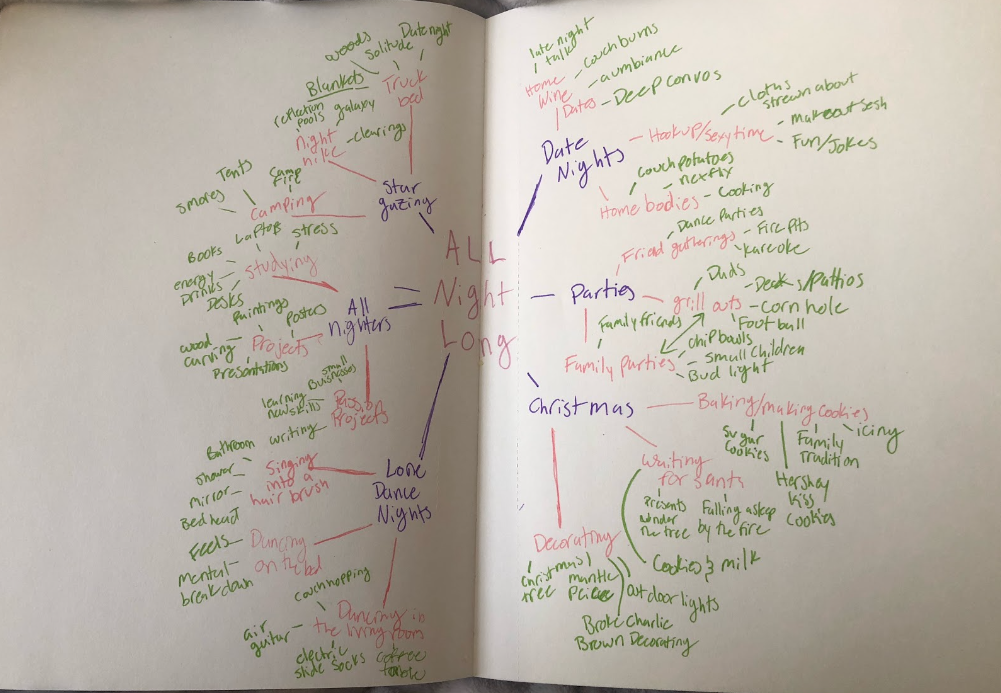 ALL
Night
Long
Star
gazing
Truck
bed
woods
Solitude
Date night
Blankets
Night
hike
reflection
pools
galaxy
clearings
Camping
smores
Tents
Camp
fire
All
nighters
studying
Books
Laptops
stress
energy
Drinks
Desks
Projects
Paintings
Posters
wood
carving
Presentations
Passion
Projects
small
Businesses
learning
new skills
writing
Lone
Dance
Nights
Singing
into a
hair brush
Bathroom
shower
mirror
Bed head
Dancing
on the bed
Feels
mental
breakdown
Dancing in
the living room
couch hopping
air
guitar
electric
slide
socks
coffee
table
Date
Nights
Home
Wine
Dates
late night
talk
couch burns
aumbiance
Deep convos
Hookup/sexytime
cloths
strewn about
makeout sesh
Fun/Jokes
Home bodies
couch potatoes
nexflix
Cooking
Parties
Friend gatherings
Dance Parties
Fire Pits
kareoke
grill outs
Dads
Decks/Pattios
corn hole
Football
Family parties
Family friends
chip bowls
small Children
Bud light
Christmas
Baking/making cookies
Sugar
Cookies
Family
Tradition
icing
Hershey
kiss
Cookies
Waiting
for santa
Presents
under
the tree
Falling asleep
by the fire
Cookies & milk
Decorating
Christmas
tree
mantle
Outdoor lights
Broke Charlie
Brown Decorating